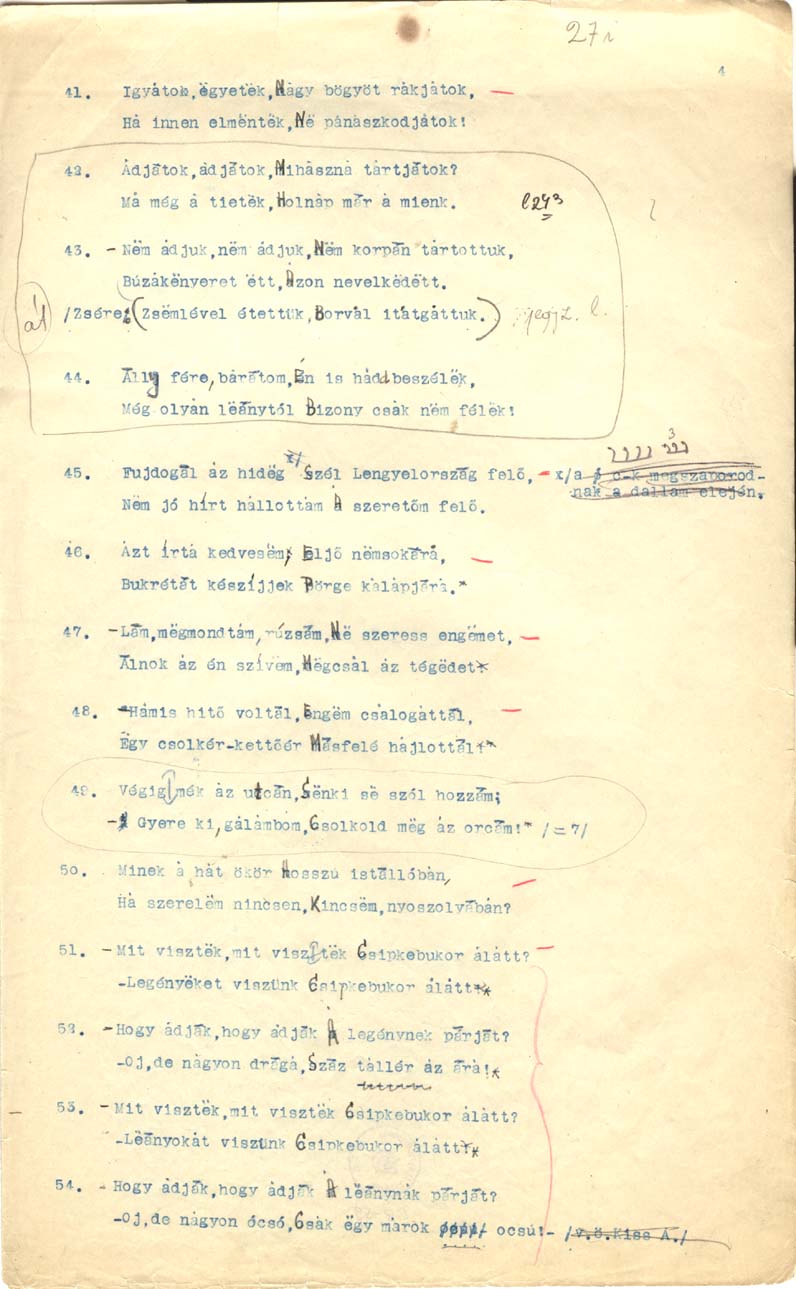 27
4
41. Igyátok, ëgyetëk, Nȧgy bögyöt rȧkjȧtok, —
Hȧ innen elmëntëk, Në pȧnȧszkodjȧtok!
42. Ȧdjātok, ȧdjātok, Mihȧsznȧ tȧrtjȧtok?
Mȧ még ȧ tietëk, Holnȧp mār ȧ mienk.
43. - Nëm ȧdjuk, nëm ȧdjuk, Nëm korpān tȧrtottuk,
Búzȧkënyeret ëtt, Ȧzon nevelkëdëtt.
/Zsére/ (Zsëmlével étettük, Borvȧl itȧtgȧttuk.) jegyz. l.
át
44. Ālly fére, bȧrātom, Én is hȧddbeszélëk,
Még olyȧn lëānytól Bizony csȧk nëm félëk!
45. Fujdogāl ȧz hidëg x/ Szél Lengyelorszāg felő, — x/a c-k megszaporod-
nak a dallam elején.
Nëm jó hírt hȧllottȧm Ȧ szeretőm felő.
46. Ȧzt írtȧ kedvesëm, Eljő nëmsokārȧ,
Bukrétāt készíjjek Börge kȧlȧpjārȧ.*
47. - Lām, mëgmondtȧm, rúzsām, Në szeress engëmet, —
Ālnok ȧz én szívem, Mëgcsȧl ȧz tégëdet*
48. Hȧmis hitő voltāl, Engëm csȧlogȧttāl, —
Ëgy csolkér-kettőér Māsfelé hȧjlottāl!*
49. Végig mék ȧz utcān, Sënki së szól hozzām;
- Gyere ki, gȧlȧmbom, Csolkold mëg ȧz orcām!* /=7/
50. Minek ȧ hȧt ökör Hosszú istāllóbȧn, —
Hȧ szerelëm nincsen, Kincsëm, nyoszolyābȧn?
51. - Mit visztëk, mit visztëk Csipkebukor ȧlȧtt? —
-Legényëket viszünk Csipkebukor ȧlȧtt*
52. - Hogy ȧdjāk, hogy ȧdjāk Ȧ legénynek pārjāt?
-Oj, de nȧgyon drāgȧ, Szāz tȧllér ȧz ārȧ!*
53. - Mit visztëk, mit visztëk Csipkebukor ȧlȧtt?
-Lëānyokȧt viszünk Csipkebukor ȧlȧtt*
54. - Hogy ȧdjāk, hogy ȧdjāk Ȧ lëānynȧk pārjāt?
-Oj, de nȧgyon ócsó, Csȧk ëgy mȧrok ocsú!- /v.ö.Kiss Á./